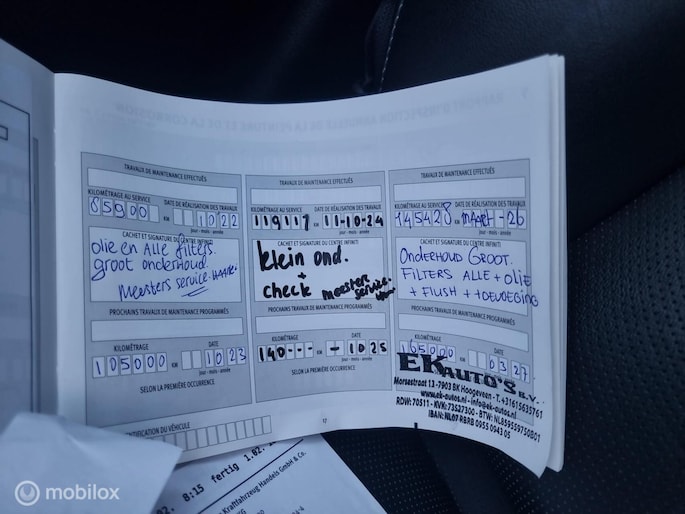 TRAVAUX DE MAINTENANCE EFFECTUÉS
KILOMÉTRAGE AU SERVICE
DATE DE RÉALISATION DES TRAVAUX
65900 KM 1022
jour - mois - année
CACHET ET SIGNATURE DU CENTRE INFINITI
olie en Alle filters.
groot onderhoud.
Meesters service.
PROCHAINS TRAVAUX DE MAINTENANCE PROGRAMMÉS
KILOMÉTRAGE
DATE
105000 KM 1023
jour - mois - année
SELON LA PREMIÈRE OCCURRENCE
TRAVAUX DE MAINTENANCE EFFECTUÉS
KILOMÉTRAGE AU SERVICE
DATE DE RÉALISATION DES TRAVAUX
119117 KM 11-10-24
jour - mois - année
CACHET ET SIGNATURE DU CENTRE INFINITI
klein ond.
+
check meesters
service.
PROCHAINS TRAVAUX DE MAINTENANCE PROGRAMMÉS
KILOMÉTRAGE
DATE
140--- KM -1025
jour - mois - année
SELON LA PREMIÈRE OCCURRENCE
TRAVAUX DE MAINTENANCE EFFECTUÉS
KILOMÉTRAGE AU SERVICE
DATE DE RÉALISATION DES TRAVAUX
145428 KM MAART-26
jour - mois - année
CACHET ET SIGNATURE DU CENTRE INFINITI
ONDERHOUD GROOT.
FILTERS ALLE + OLIE
+ FLUSH + TOEVOEGING
PROCHAINS TRAVAUX DE MAINTENANCE PROGRAMMÉS
KILOMÉTRAGE
DATE
165000 KM 0327
EK AUTO'S B.V.
Morsestraat 13 - 7903 BK Hoogeveen - T.+31615635761
www.ek-autos.nl - info@ek-autos.nl
RDW: 70511 - KVK: 73527300 - BTW: NL859559750B01
IBAN: NL07 RBRB 0955 0943 05
ENTIFICATION DU VÉHICULE
17
02. 8:15 fertig 1.02.
Kraftfahrzeug Handels GmbH & Co.
KG
mobilox